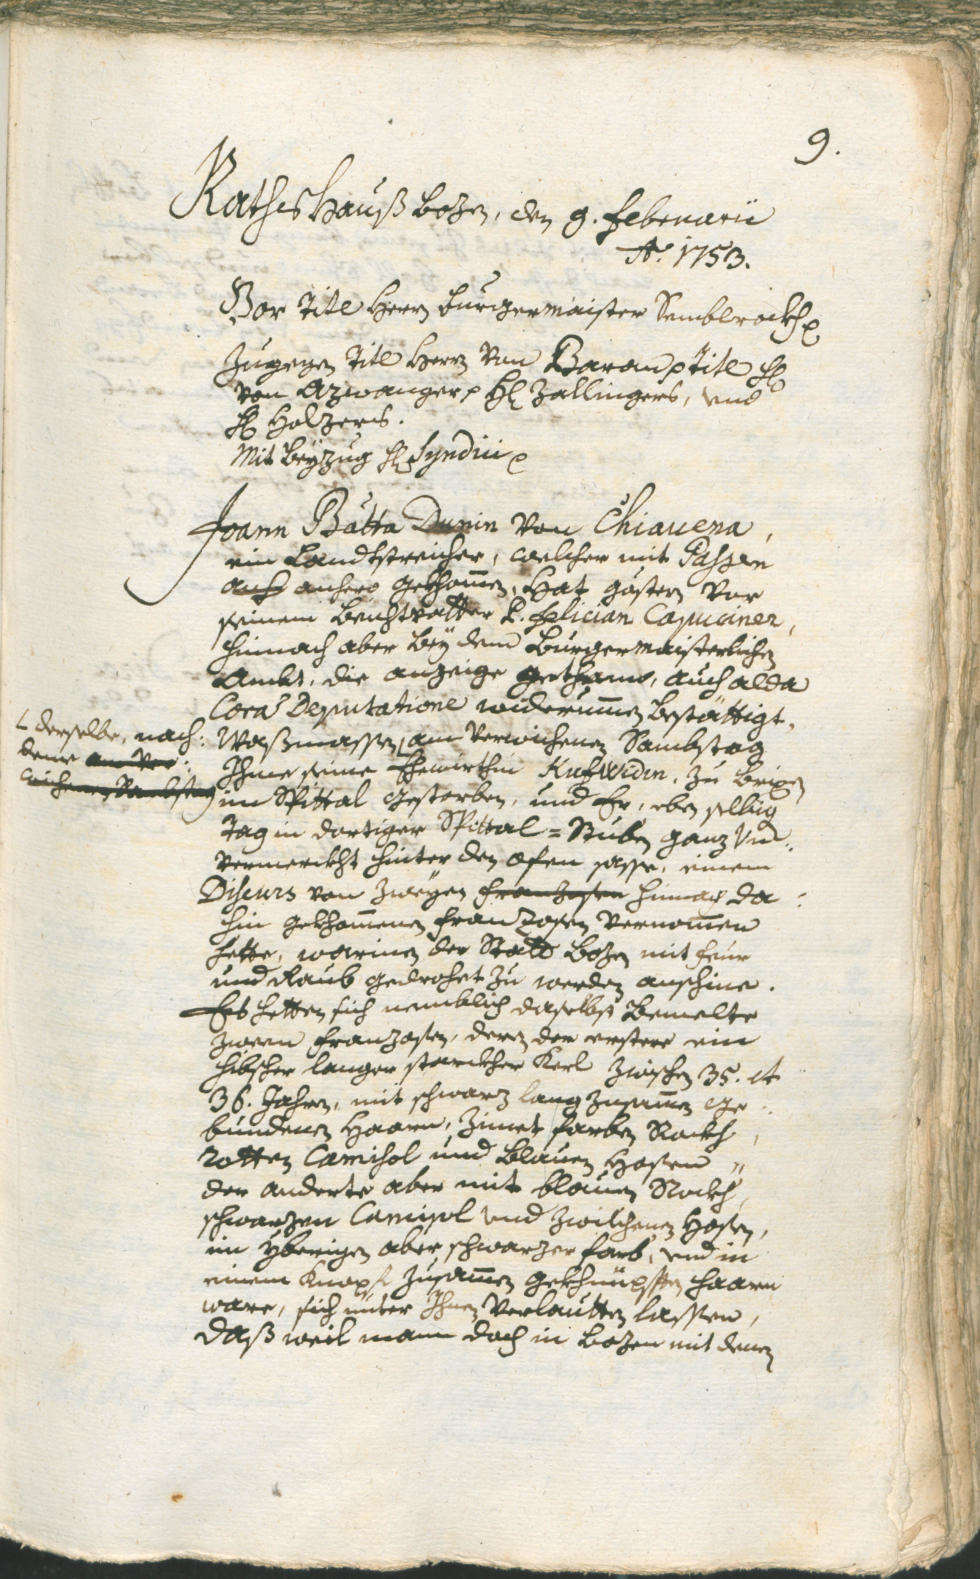 9.
Raths Hauß Bozen, den 9. Febenarii
Ao. 1753.
Vor Titl Herrn Burgermaister Semblrockh
Zugegen Titl Herrn von Baran Titl H
von Azwanger H Zallingers, und
H Holzers.
Mit Beyzug H Syndici
Joann Batta Dunin von Chiauena,
ein Landtstreicher, welcher mit Passen
auch anhero gekhommen, hat gestern vor
seinem Beichtvatter P. Felician Capuciner,
hinnach aber bey dem Burgermaisterlichen
Ambt, die anzeige gethanno, auch alda
Cora Deputatione widerummen bestättigt,
Waßmassen, am verwichenen Sambstag
L derselbe, nach:
deme am Ver:
wichenen Sambstag
Ihme seine Ehewürthin zu Brixen
im Spittal gestorben, und Er, eben selbig
Tag in dortiger Spittal=Stuben ganz Un:
vermerckht hinter den ofen sasse, einem
Discurs von zweyen Franzosen hinnach da:
hin gekhommenen Franzosen vernommen
hette, warinen der Statt Bozen mit Feur
und Raub gedrohet zu werden anschine.
Es hetten sich nemblich daselbst bemelte
zween Franzosen, deren der erstere ein
hibscher langer starckher Kerl zwischen 35. et
36. Jahren, mit schwarz lang zusamen ge:
bundenen Haaren, Zimet farben Rockh,
rotten Camisol und blauen Hosen,,
der anderte aber mit blauen Rockh,
schwarzen Camisol und zwilchenen Hosen,
im yberigen aber schwarzer farb, und in
einem Knopf zusamen gekhnüpften haaren
ware, sich unter Ihnen verlautten lassen,
daß weil mann doch in Bozen mit denen